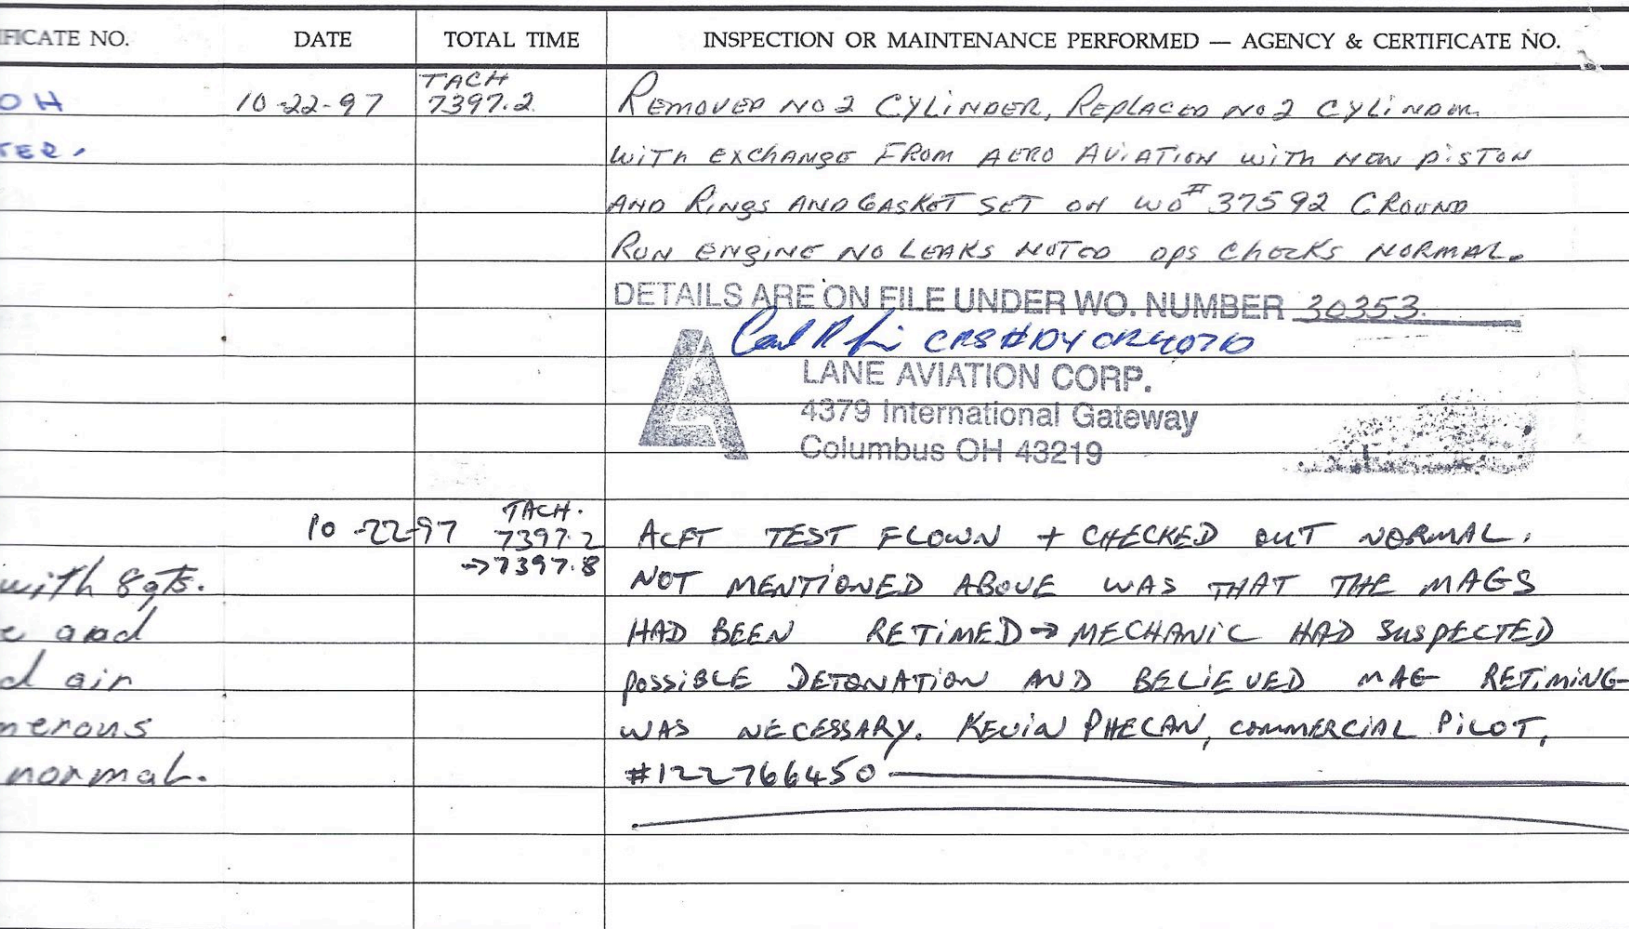 FICATE NO. DATE TOTAL TIME INSPECTION OR MAINTENANCE PERFORMED — AGENCY & CERTIFICATE NO.
OH 10-22-97 TACH 7397.2 REMOVED NO 2 CYLINDER, REPLACED NO 2 CYLINDER
TER. WITH EXCHANGE FROM AERO AVIATION WITH NEW PISTON
AND RINGS AND GASKET SET ON WO# 37592 GROUND
RUN ENGINE NO LEAKS NOTED OPS CHECKS NORMAL.
DETAILS ARE ON FILE UNDER WO. NUMBER 30353
CRS#
LANE AVIATION CORP.
4379 International Gateway
Columbus OH 43219
10-22-97 TACH. 7397.2 ACFT TEST FLOWN + CHECKED OUT NORMAL.
with 8qts. →7397.8 NOT MENTIONED ABOVE WAS THAT THE MAGS
e and HAD BEEN RETIMED → MECHANIC HAD SUSPECTED
d air POSSIBLE DETONATION AND BELIEVED MAG RETIMING
merous WAS NECESSARY. KEVIN PHECAN, COMMERCIAL PILOT,
normal. #122766450